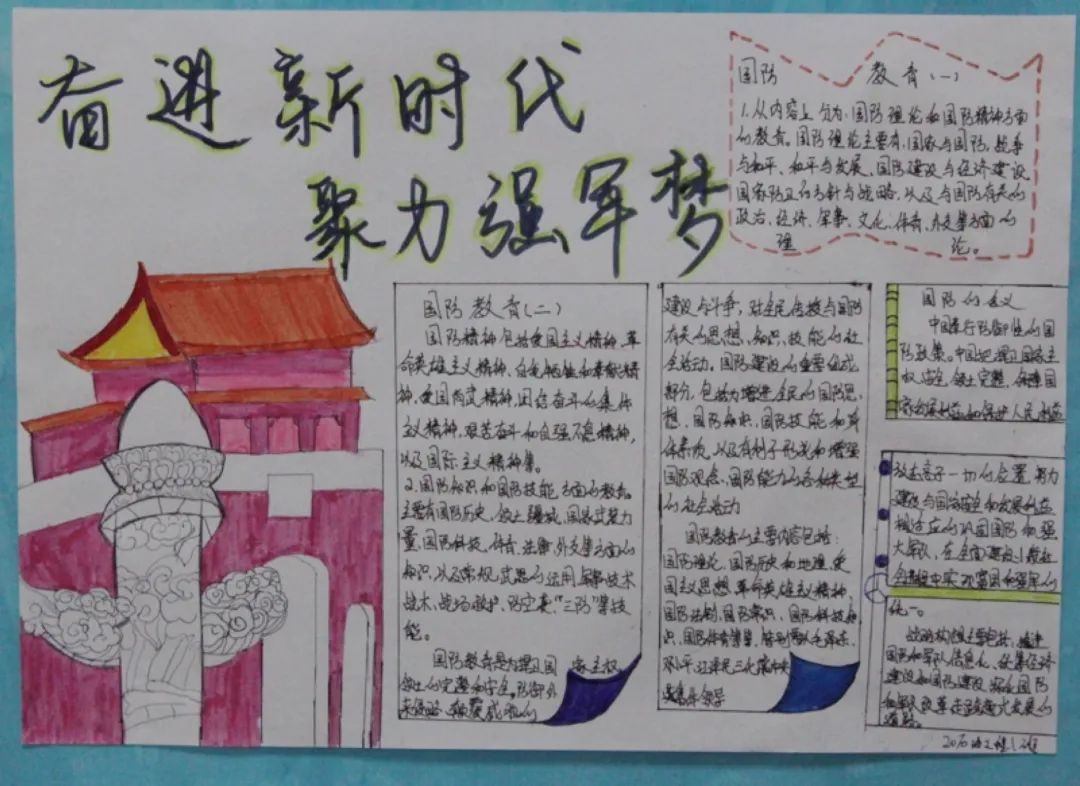 奋进新时代
聚力强军梦
国防 教育(一)
1.从内容上分为:国防理论和国防精神方面
的教育。国防理论主要有:国家与国防,战争
与和平、和平与发展、国防建设与经济建设,
国家防卫的方针与战略,以及与国防有关的
政治、经济、军事、文化、体育、外交等方面的
理 论。
国防教育(二)
国防精神包括爱国主义精神、革
命英雄主义精神、自我牺牲和奉献精
神,爱国尚武精神,团结奋斗的集体
主义精神,艰苦奋斗和自强不息精神,
以及国际主义精神等。
2.国防知识和国防技能方面的教育。
主要有国防历史、领土疆域、国家武装力
量、国防科技、体育、法制、外交等方面的
知识,以及常规武器的运用、军事技术
战术、战场救护、防空袭、"三防"等技
能。
国防教育是为捍卫国 家主权、
领土的完整和安全。防御外
来侵略、颠覆威胁的
建设与斗争,对全民传授与国防
有关的思想、知识、技能的社
会活动。国防建设的重要组成
部分,包括为增进全民的国防思
想、国防知识、国防技能和身
体素质,以及有利于形成和增强
国防观念、国防能力的各种类型
的社会活动
国防教育的主要内容包括:
国防理论,国防历史和地理,爱
国主义思想,革命英雄主义精神,
国防法制,国防常识、国防科技知
识、国防体育等等,
邓小平、江泽民三代
集体领导
国防的含义
中国奉行防御性的国
防政策。中国把捍卫国家主
权、安全、领土完整,保障国
家发展利益和保护人民利益
放在高于一切的位置,努力
建设与国家安全和发展利益
相适应的巩固国防和强
大军队,在全面建设小康社
会进程中实现富国和强军的
统一。
战略构想主要包括:推进
国防和军队信息化、统筹经济
建设和国防建设、深化国防
和军队改革、走跨越式发展的
道路。